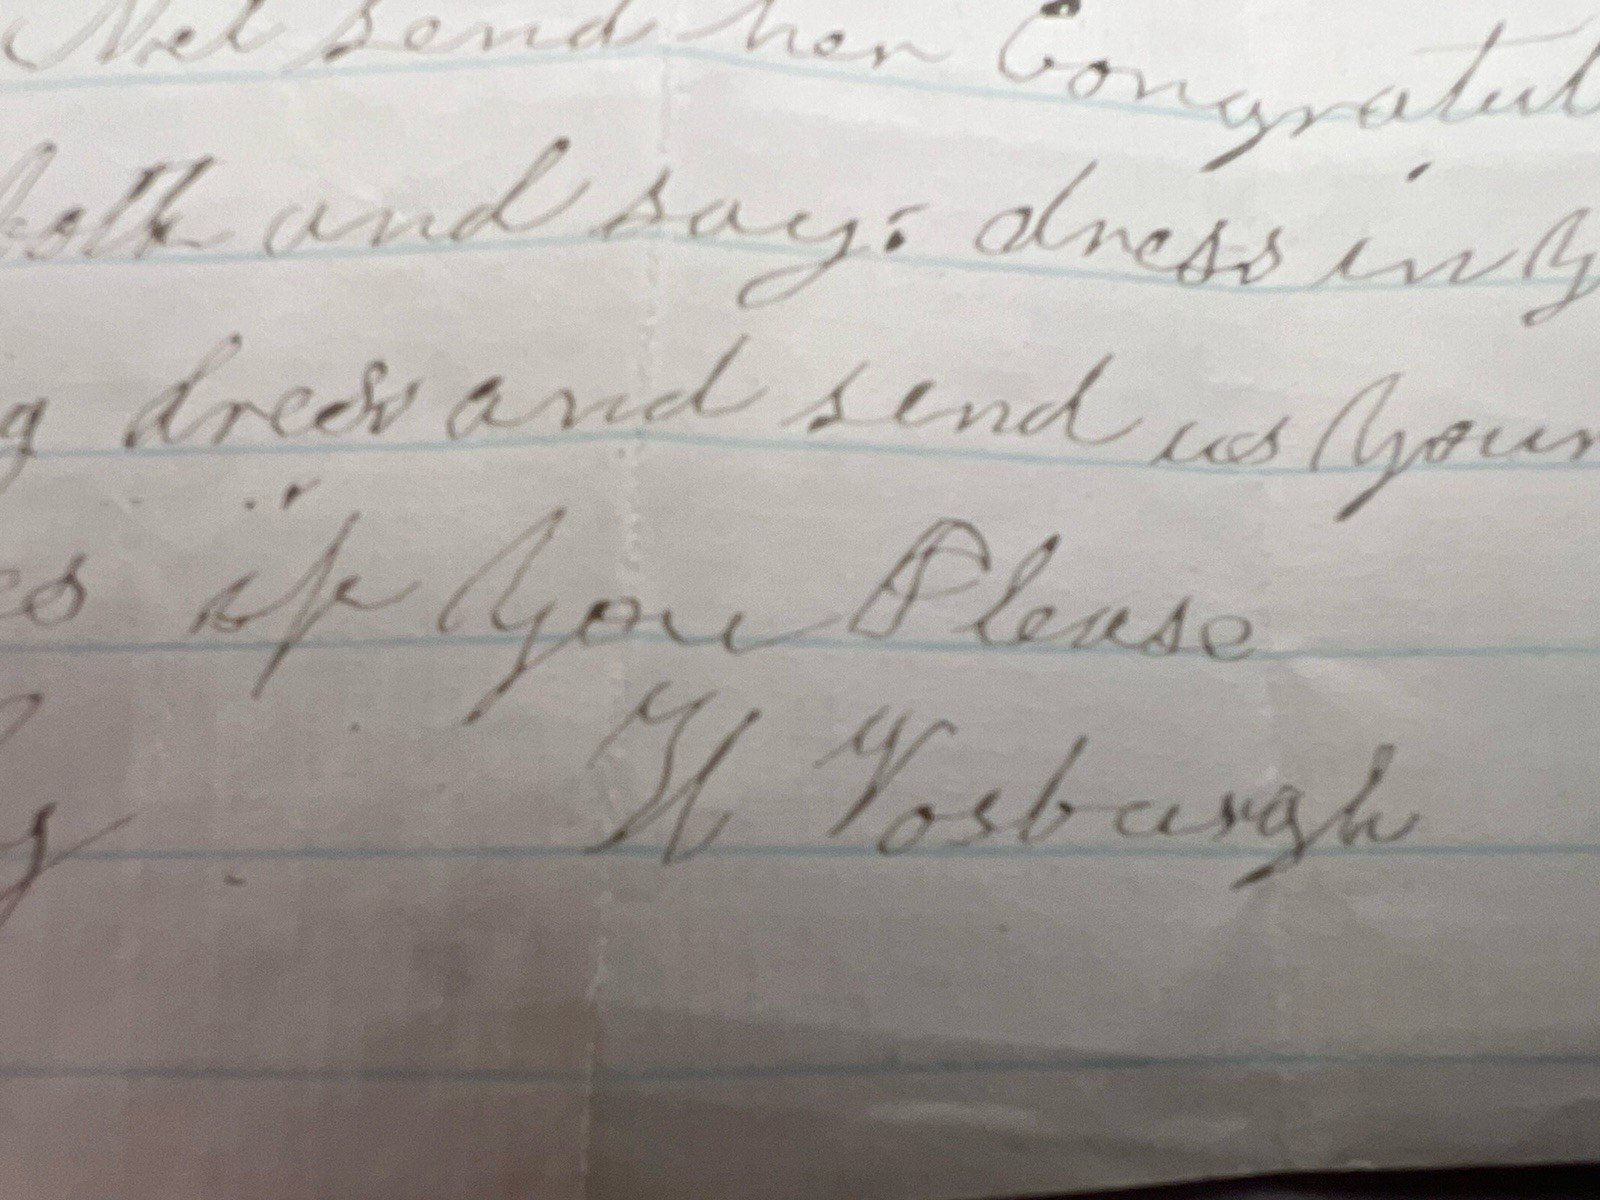 send her Congratul
and say: dress in y
g dress and send us your
es if you Please
H Vosburgh